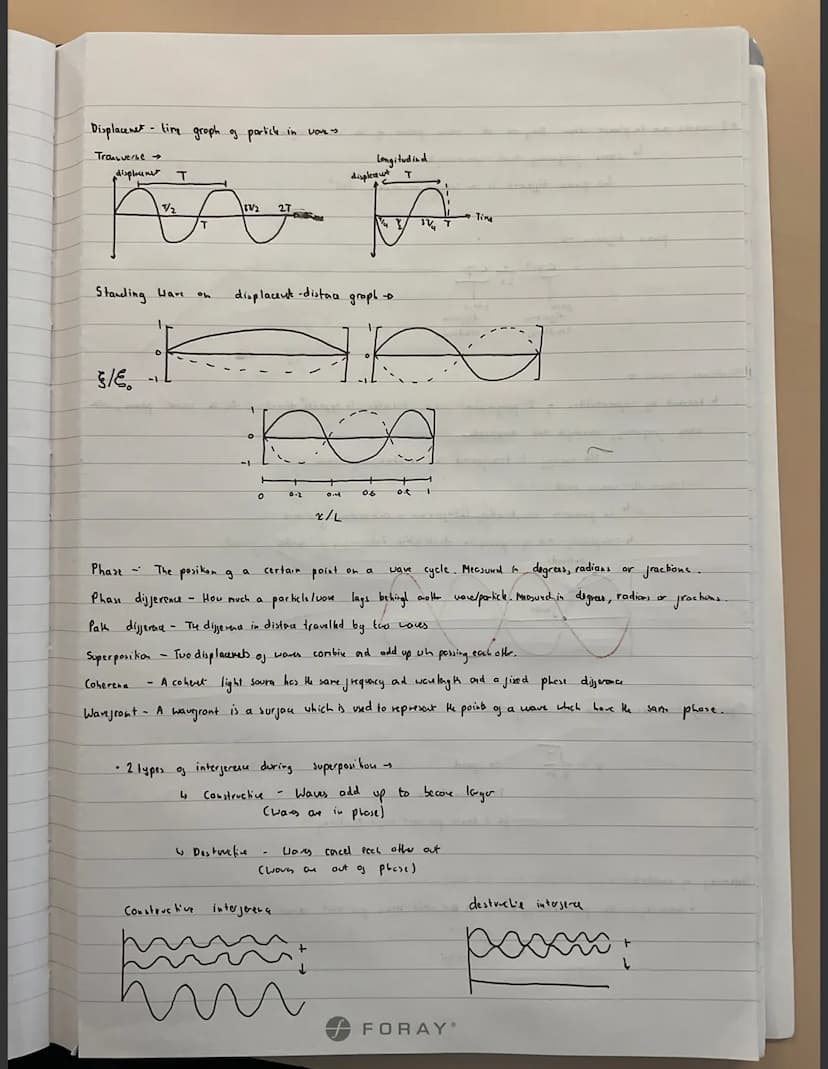 Displacement - time graph of particle in wave →
Transverse →
Longitudinal
displacement T
displacement T
T/2 T 3T/2 2T
T/4 T/2 3T/4 T Time
Standing wave on displacement-distance graph →
1 0 -1
1 0 -1
ξ/ξ₀
1 0 -1
0 0.2 0.4 0.6 0.8 1
x/L
Phase - The position of a certain point on a wave cycle. Measured in degrees, radians or fractions.
Phase difference - How much a particle/wave lags behind another wave/particle. Measured in degrees, radians or fractions.
Path difference - The difference in distance travelled by two waves
Superposition - Two displacements of waves combine and add up when passing each other.
Coherence - A coherent light source has the same frequency and wavelength and a fixed phase difference
Wavefront - A wavefront is a surface which is used to represent the points of a wave which have the same phase.
• 2 types of interference during superposition →
↳ Constructive - Waves add up to become larger
(waves are in phase)
↳ Destructive - Waves cancel each other out
(waves are out of phase)
Constructive interference
destructive interference
+
+
FORAY